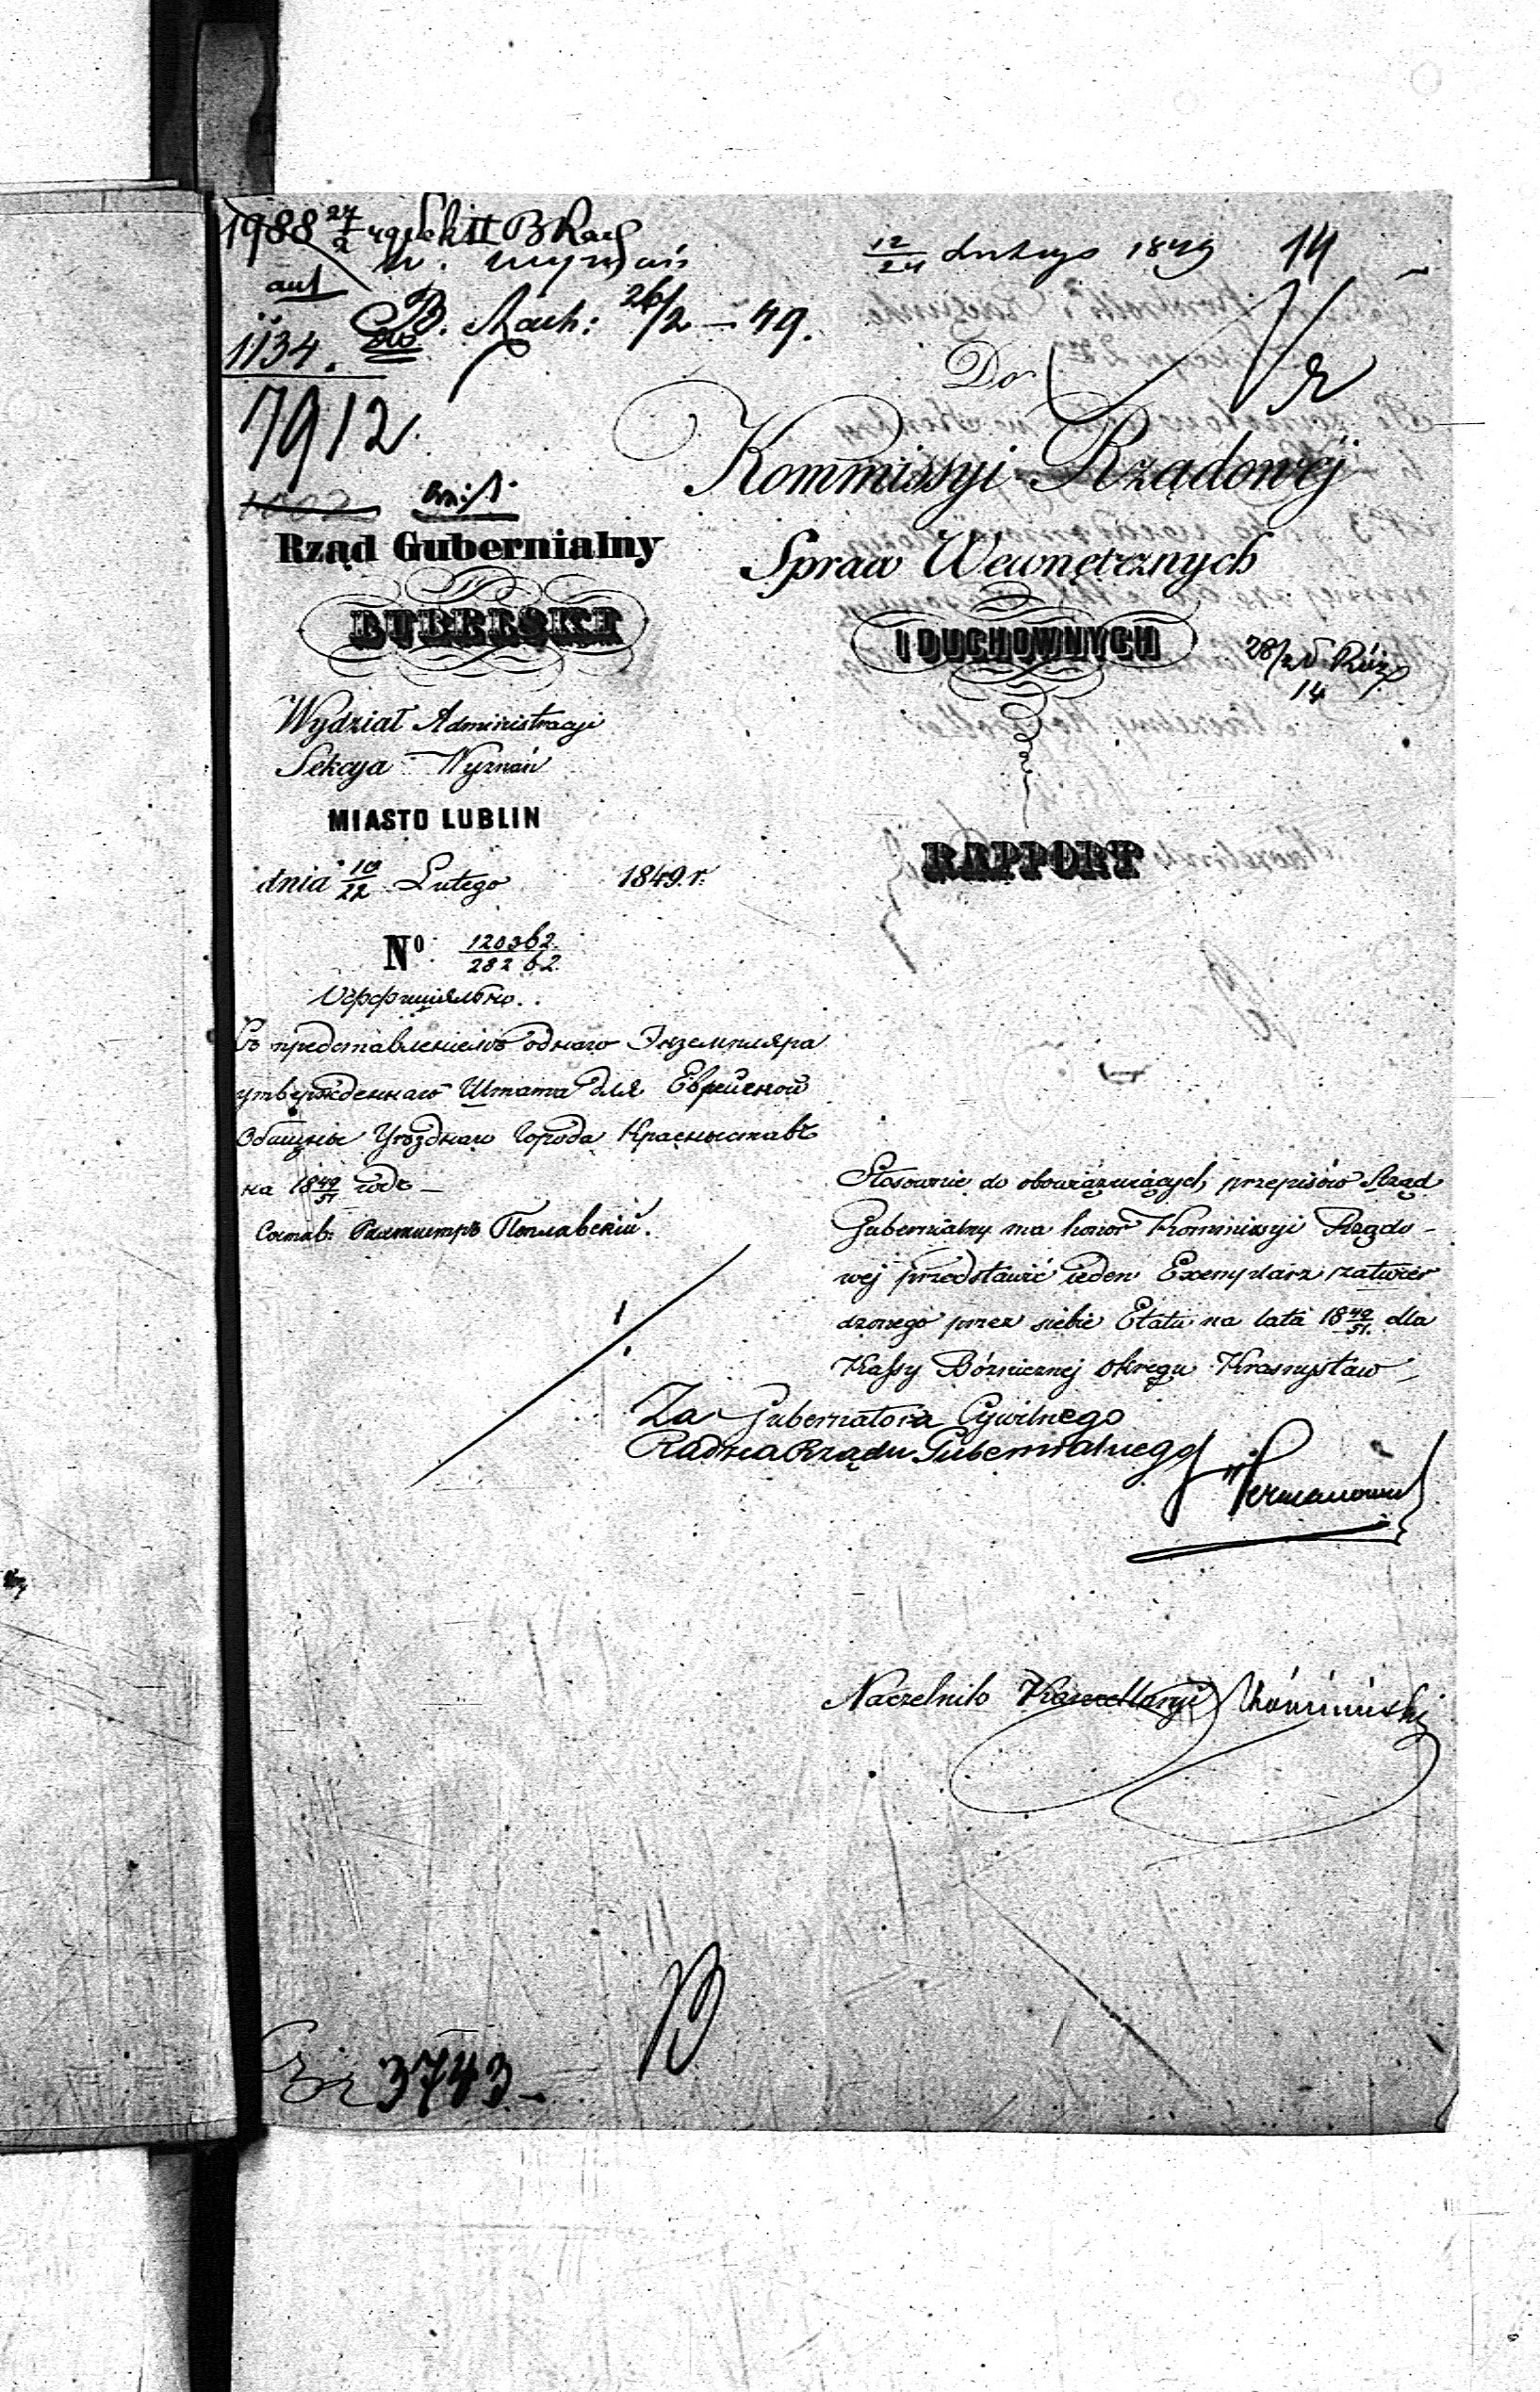 1988 27/2 49 Sek II B Rach
w. wyznań
B. Rach: 26/2 - 49.
1134.
7912
12/24 Lutego 1849
14
Do
Kommissyi Rządowéj
Spraw Wewnętrznych
I DUCHOWNYCH
28/2
14
RAPPORT
Rząd Gubernialny
LUBELSKI
Wydział Administracyi
Sekcya Wyznań
MIASTO LUBLIN
dnia 10/22 Lutego 1849. r.
Nº 120362./28262.
Съ представленіемъ однаго Экземпляра
утвержденнаго Штата для Еврейской
Общины Уѣзднаго Города Красныставъ
на 18 49/51 годъ —
Состав: Поплавскій.
Stosownie do obowiązujących przepisów Rząd
Gubernialny ma honor Kommissyi Rządo-
wej przedstawić ieden Exemplarz zatwier
dzonego przez siebie Etatu na lata 18 49/51. dla
Kassy Bóżnicznej Okręgu Krasnystaw —
Za Gubernatora Cywilnego
Radca Rządu Gubernialnego
Naczelnik Kancellaryi
3743.—